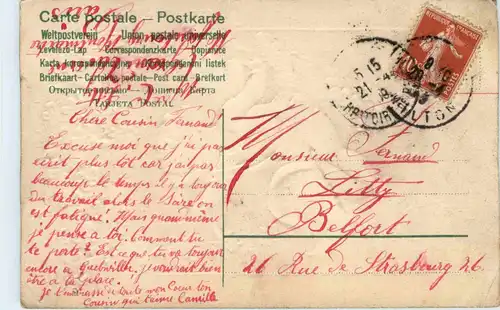 Carte postale - Postkarte
Weltpostverein — Union postale universelle
Levelezo-Lap — Correspondenzkarte — Dopisnice
Karta korespondencyjna — Korespondenčni listek
Briefkaart — Cartolina postale — Post card — Brefkort
Открытое письмо — Unioni Karta
Tarjeta Postal
REPUBLIQUE FRANÇAISE
10
5 15
21 -4
Chère Cousin Fernand
Excuse moi que j'ai pas
écrit plus tôt car j'ai pas
beaucoup de temps il y a toujours
du travail alors le Soire on
est fatigué. Mais quand même
je pense a toi. Comment tu
te porte? Est ce que tu va toujours
encore a Guebwiller. je voudrait bien
être à la place.
je t'embrasse de toute mon Coeur ton
Cousin qui t'aime Camille
Monsieur Fernand
Litty
Belfort
26 Rue de Strasbourg 26